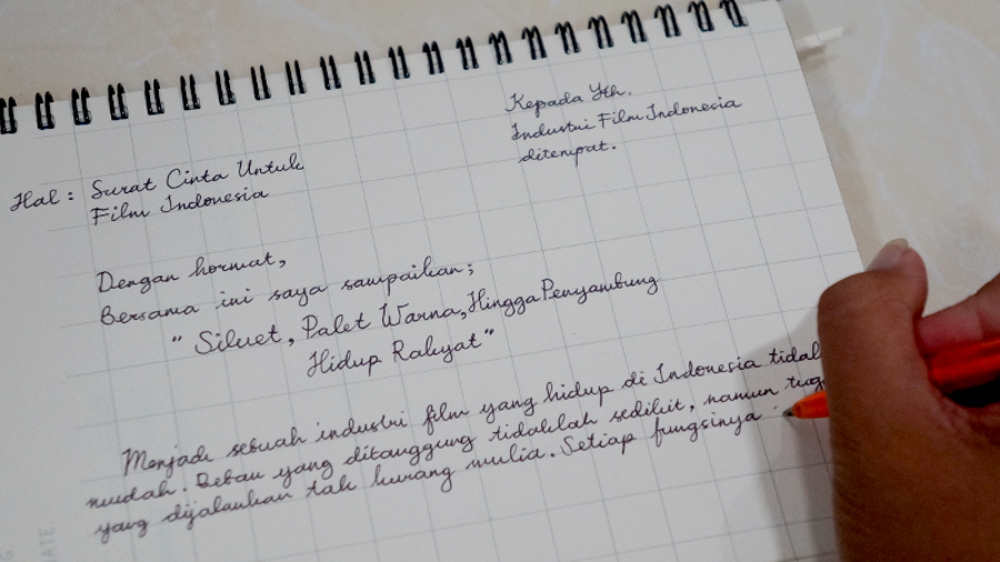 Kepada Yth.
Industri Film Indonesia
ditempat.
Hal : Surat Cinta Untuk
Film Indonesia
Dengan hormat,
Bersama ini saya sampaikan;
" Siluet, Palet Warna, Hingga Penyambung
Hidup Rakyat"
Menjadi sebuah industri film yang hidup di Indonesia tidak
mudah. Beban yang ditanggung tidaklah sedikit, namun
yang dijalankan tak kurang mulia. Setiap fungsinya